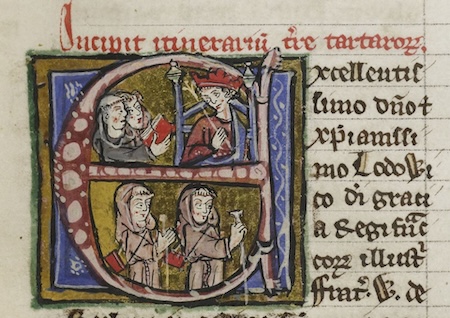 Incipit itinerariū t̄re tartarorꝝ.
Excellentis
simo dño ⁊
xp̄ianissi
mo Lodowi
co di graci
a Regi fūc
corꝝ illustͬ
ffrat̄. W. de